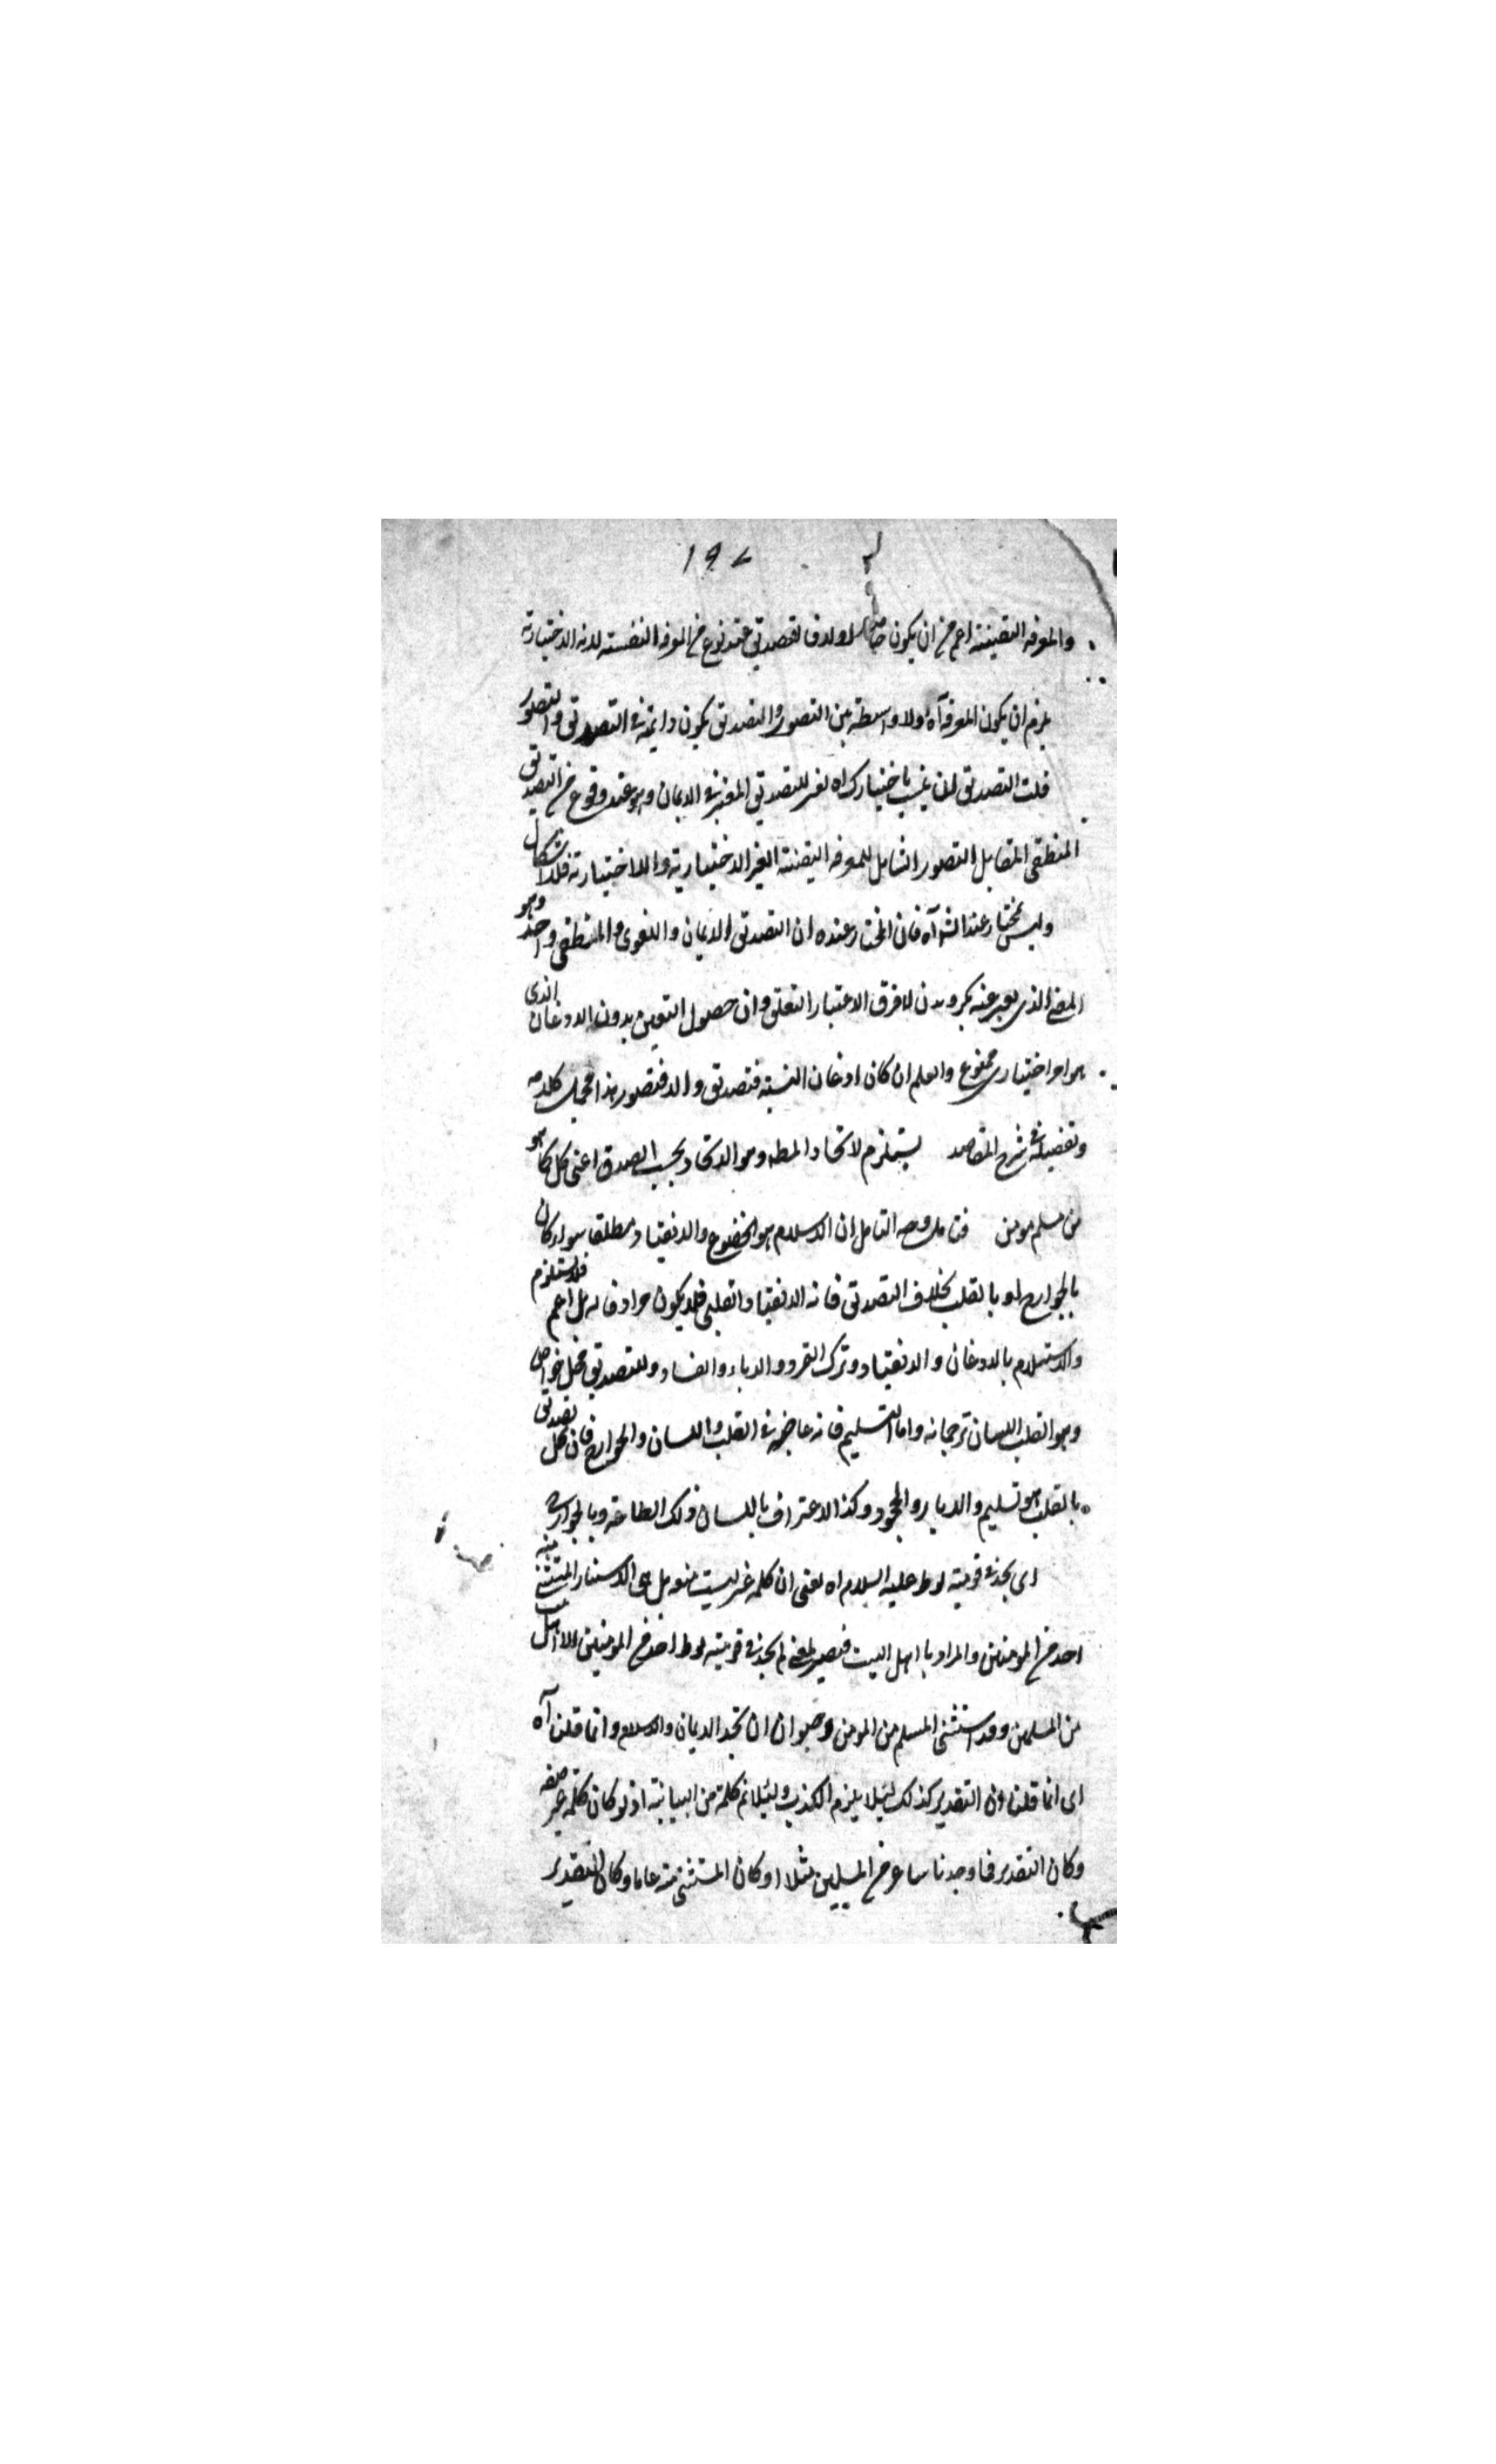 ١٩٧
والمعرفة اليقينية اعم من ان يكون حاصلا اولا فالتصديق عنده نوع من المعرفة النفسية لانه الاختيارية
يلزم ان يكون المعرفة آه ولا واسطة بين التصور والتصديق يكون داخلة في التصديق والتصور
قلت التصديق ان ينسب باختيارك اه تفسير للتصديق المعتبر في الايمان وهو عنده نوع من التصديق
المنطقي المقابل للتصور الشامل للمعرفة اليقينية الغير الاختيارية والاختيارية فلا اشكال
وليس بمختار عند الش آه فان المختار عنده ان التصديق الايمان واللغوي والمنطقي واحد وهو
المعنى الذي يعبر عنه بكرويدن لا فرق الا عتبار التعلق وان حصول اليقين بدون الاذعان الذي
هو امر اختياري ممنوع والعلم ان كان اذعان النسبة فتصديق والا فتصور هذا مجمل كلامه
وتفصيله في شرح المقاصد يستلزم لاتحاد المط وهو الاتحاد بحسب الصدق اعني كل ما هو
من مسلم مومن فتامل وجه التامل ان الاسلام هو الخضوع والانقياد مطلقا سواء كان
بالجوارح او بالقلب بخلاف التصديق فانه الانقياد القلبي فلا يكون مرادفا له بل اعم فلا يستلزم
والاستسلام بالاذعان والانقياد وترك التمرد والاباء والعناد وللتصديق محل خاص
وهو القلب اللسان ترجمانه واما التسليم فانه عام في القلب واللسان والجوارح فان كل تصديق
بالقلب هو تسليم والاباء والجحود وكذا الاعتراف باللسان وكذلك الطاعة وبالجوارح
اي لم يجد في قرية لوط عليه السلام اه يعني ان كلمة غير ليست صفة بل هي الاستثناء المستثنى منه
احد من المومنين والمراد با اهل البيت فيصير المعنى لم نجد في قرية لوط احد من المومنين الا اهل بيت
من المسلمين وقد استثنى المسلم من المومن وجب ان ان يتحد الايمان والاسلام وانما قلنا آه
اي انما قلنا ان التقدير كذلك لئلا يلزم الكذب ولئلائم كلمة من البيانية اذ لو كان كلمة غير صفة
وكان التقدير فما وجدنا بيتا غير من المسلمين مثلا او كان المستثنى منه عاما وكان التقدير